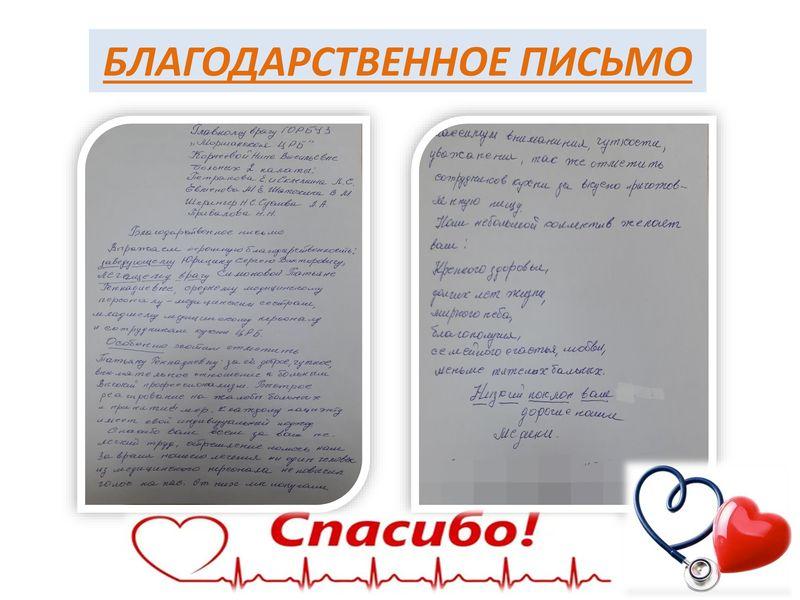 БЛАГОДАРСТВЕННОЕ ПИСЬМО
Главному врачу ТОГБУЗ
„Моршанской ЦРБ"
Корневой Нине Васильевне
больных 2 палаты:
Благодарственное письмо
Выражаем огромную благодарственность:
заведующему Юрицину Сергею Викторовичу,
врачу Симоновой Татьяне
Геннадиевне, среднему медицинскому
персоналу – медицинским сестрам,
младшему медицинскому персоналу
и сотрудникам кухни ЦРБ.
Особенно хотим отметить
Татьяну Геннадиевну: за её доброе, чуткое,
внимательное отношение к больным
Высокий профессионализм. Быстрое
реагирование на жалобы больных
и принятие мер, к каждому пациенту
имеет свой индивидуальный подход
Спасибо Вам всем за ваш не-
легкий труд, стремление помочь нам
За время нашего лечения ни один человек
из медицинского персонала не повысил
голос на нас. От них мы получали
максимум внимания, чуткости,
уважения, так же отметить
сотрудников кухни за вкусно приготов-
ленную пищу.
Наш небольшой коллектив желает
вам:
Крепкого здоровья,
долгих лет жизни,
мирного неба,
благополучия,
семейного счастья, любви,
меньше тяжелых больных.
Низкий поклон вам
дорогие наши
медики.
Спасибо!